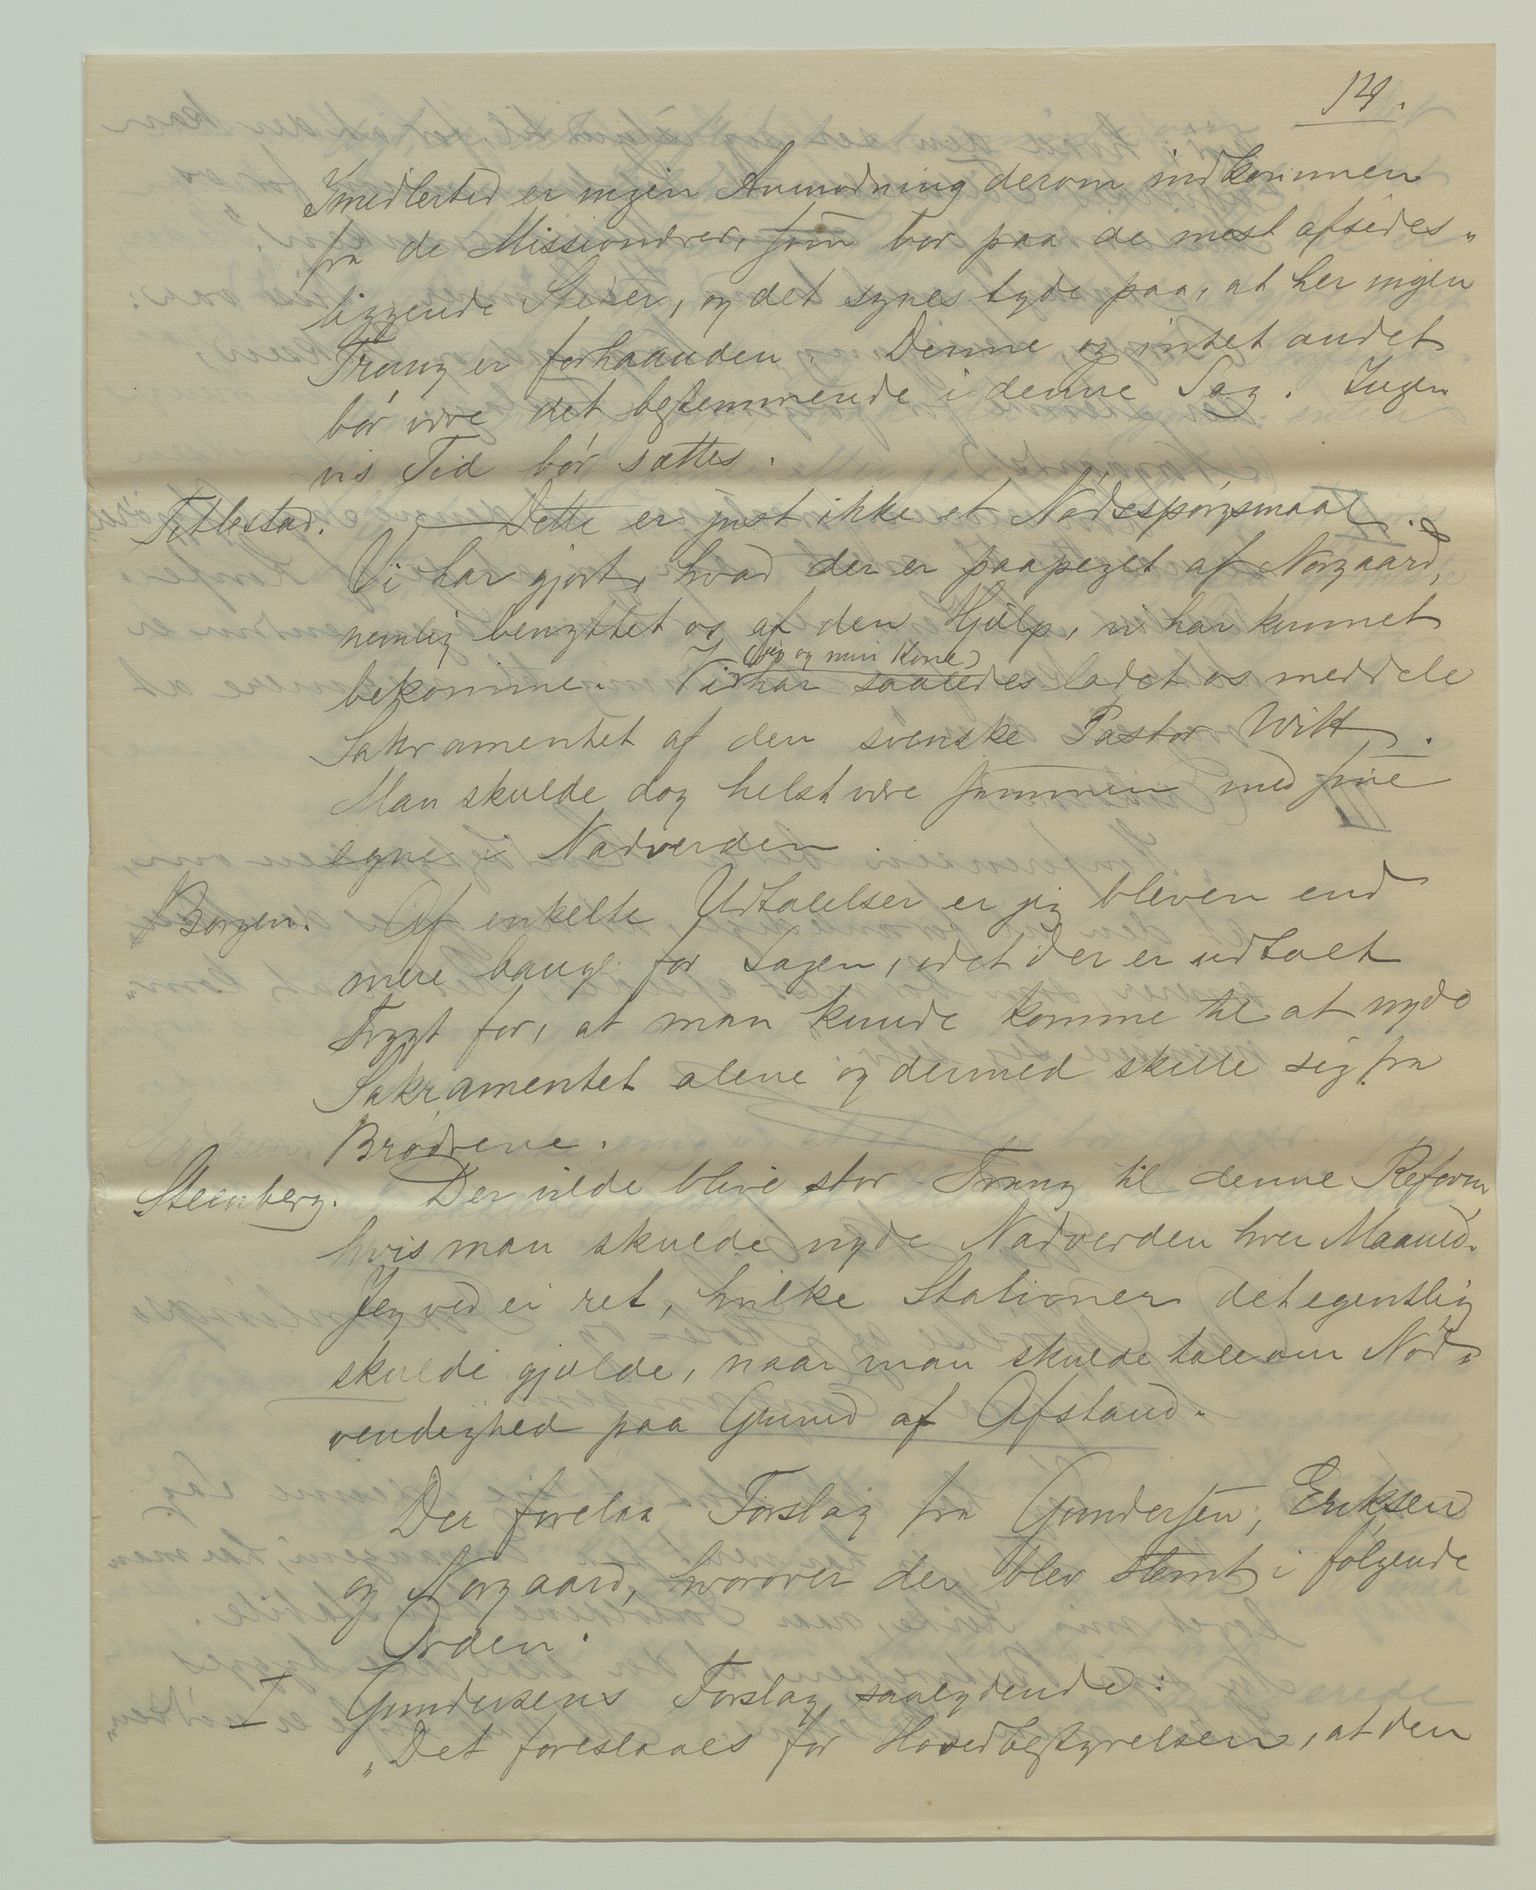 124.
Imidlertid er ingen Anmodning derom indkommen
fra de Missionærer, som bor paa de mest afsides-
liggende Steder, og det synes tyde paa, at her ingen
Trang er forhaanden. Denne og intet andet
bør være det bestemmende i denne Sag. Ingen
vis Tid bør sættes.
Titlestad. Dette er just ikke et Nødsspørgsmaal.
Vi har gjort, hvad der er paapeget af Norgaard,
nemlig benyttet os af den Hjælp, vi har kunnet
(jeg og min Kone)
bekomme. Vi har saaledes ladet os meddele
Sakramentet af den svenske Pastor Witt.
Man skulde dog helst være sammen med sine
egne i Nadverden.
Borgen. Af enkelte Udtalelser er jeg bleven end
mere bange for Sagen, idet der er udtalt
Frygt for, at man kunde komme til at nyde
Sakramentet alene og dermed skille sig fra
Brødrene.
Steenberg. Der vilde blive stor Trang til denne Reform,
hvis man skulde nyde Nadverden hver Maaned.
Jeg ved ei ret, hvilke Stationer det egentlig
skulde gjælde, naar man skulde tale om Nød-
vendighed paa Grund af Afstand.
Der forelaa Forslag fra Gundersen, Eriksen
og Norgaard, hvorover der blev stemt i følgende
Orden:
I Gundersens Forslag saalydende:
"Det foreslaaes for Hovedbestyrelsen, at den